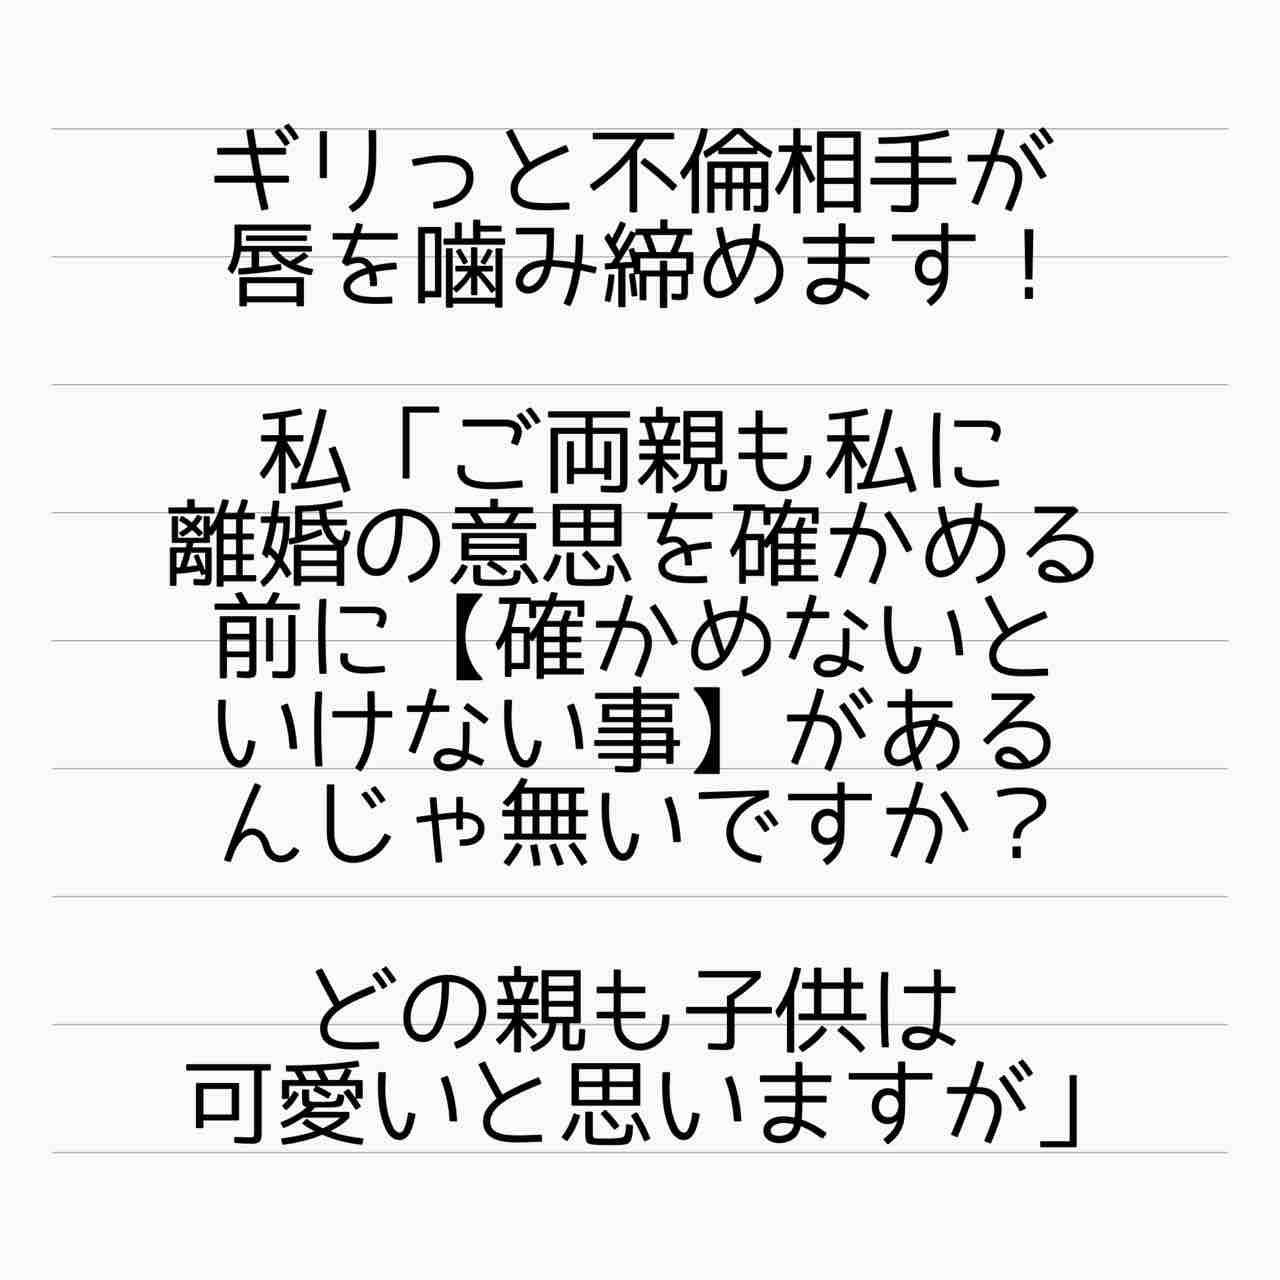 ギリっと不倫相手が
唇を噛み締めます！
私「ご両親も私に
離婚の意思を確かめる
前に【確かめないと
いけない事】がある
んじゃ無いですか？
どの親も子供は
可愛いと思いますが」